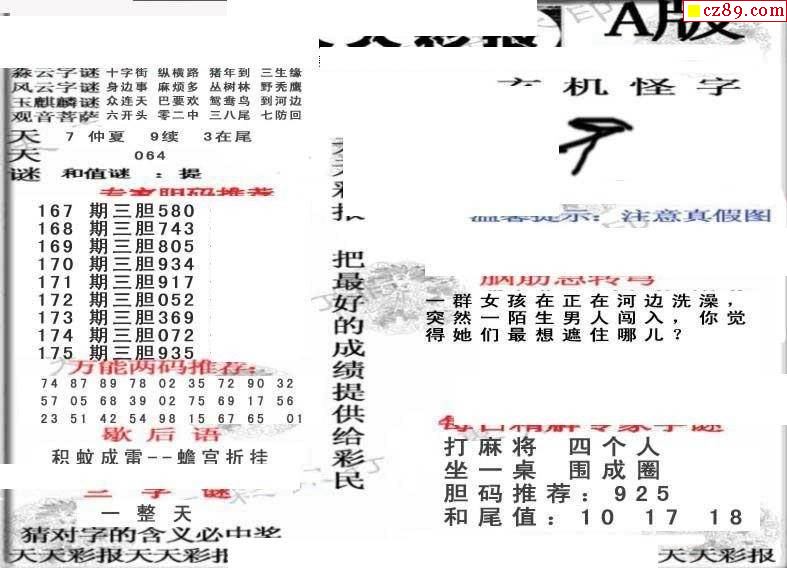 cz89.com
天天彩报 A版
森云字谜 十字街 纵横路 猪年到 三生缘
风云字谜 身边事 麻烦多 丛树林 野秃鹰
玉麒麟谜 众连天 巴要欢 鸳鸯鸟 到河边
观音菩萨 六开头 零二中 三八尾 七防回
天 7 仲夏 9续 3在尾
天 064
谜 和值谜 : 提
专家胆码推荐
167 期三胆580
168 期三胆743
169 期三胆805
170 期三胆934
171 期三胆917
172 期三胆052
173 期三胆369
174 期三胆072
175 期三胆935
万能两码推荐:
74 87 89 78 02 35 72 90 32
57 05 68 39 02 75 69 17 56
23 51 42 54 98 15 67 65 01
歇后语
积蚊成雷--蟾宫折挂
三字谜
一整天
猜对字的含义必中奖
天天彩报天天彩报
天天彩报
把最好的成绩提供给彩民
玄机怪字
温馨提示: 注意真假图
脑筋急转弯
一群女孩在正在河边洗澡，
突然一陌生男人闯入，你觉
得她们最想遮住哪儿？
每日精解专家字谜
打麻将 四个人
坐一桌 围成圈
胆码推荐: 925
和尾值: 10 17 18
天天彩报